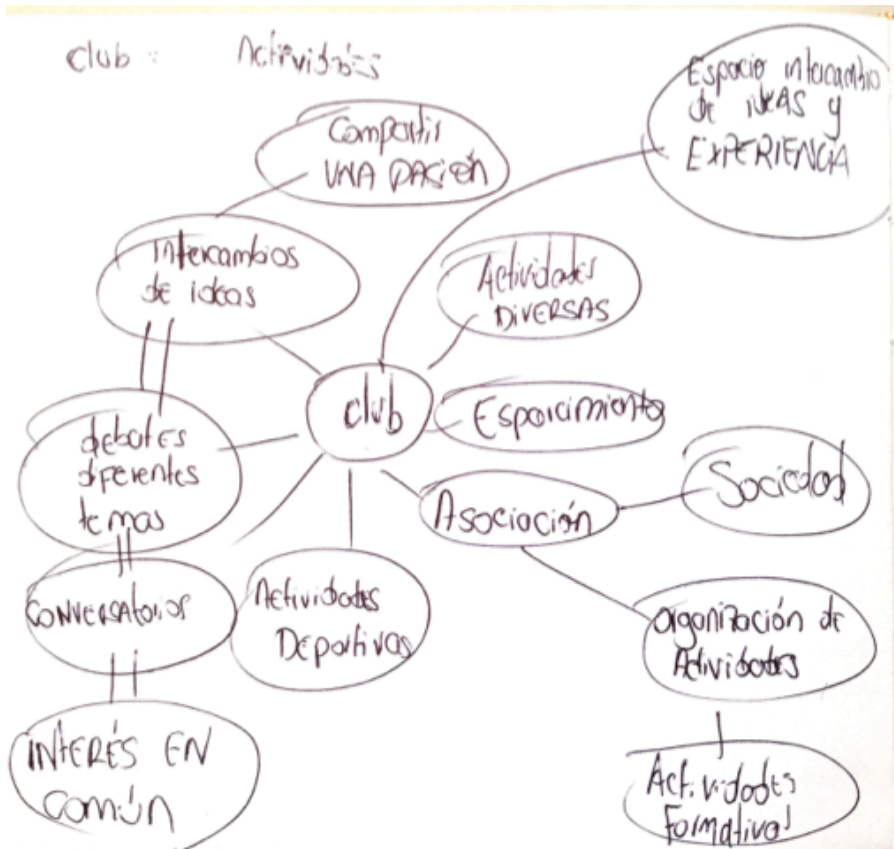 club : Actividades
Espacio intercambio
de ideas y
EXPERIENCIA
Compartir
UNA PASIÓN
Intercambios
de ideas
Actividades
DIVERSAS
club
Esparcimiento
debates
diferentes
temas
Asociación
Sociedad
CONVERSATORIOS
Actividades
Deportivas
Organización de
Actividades
INTERÉS EN
COMÚN
Actividades
Formativas